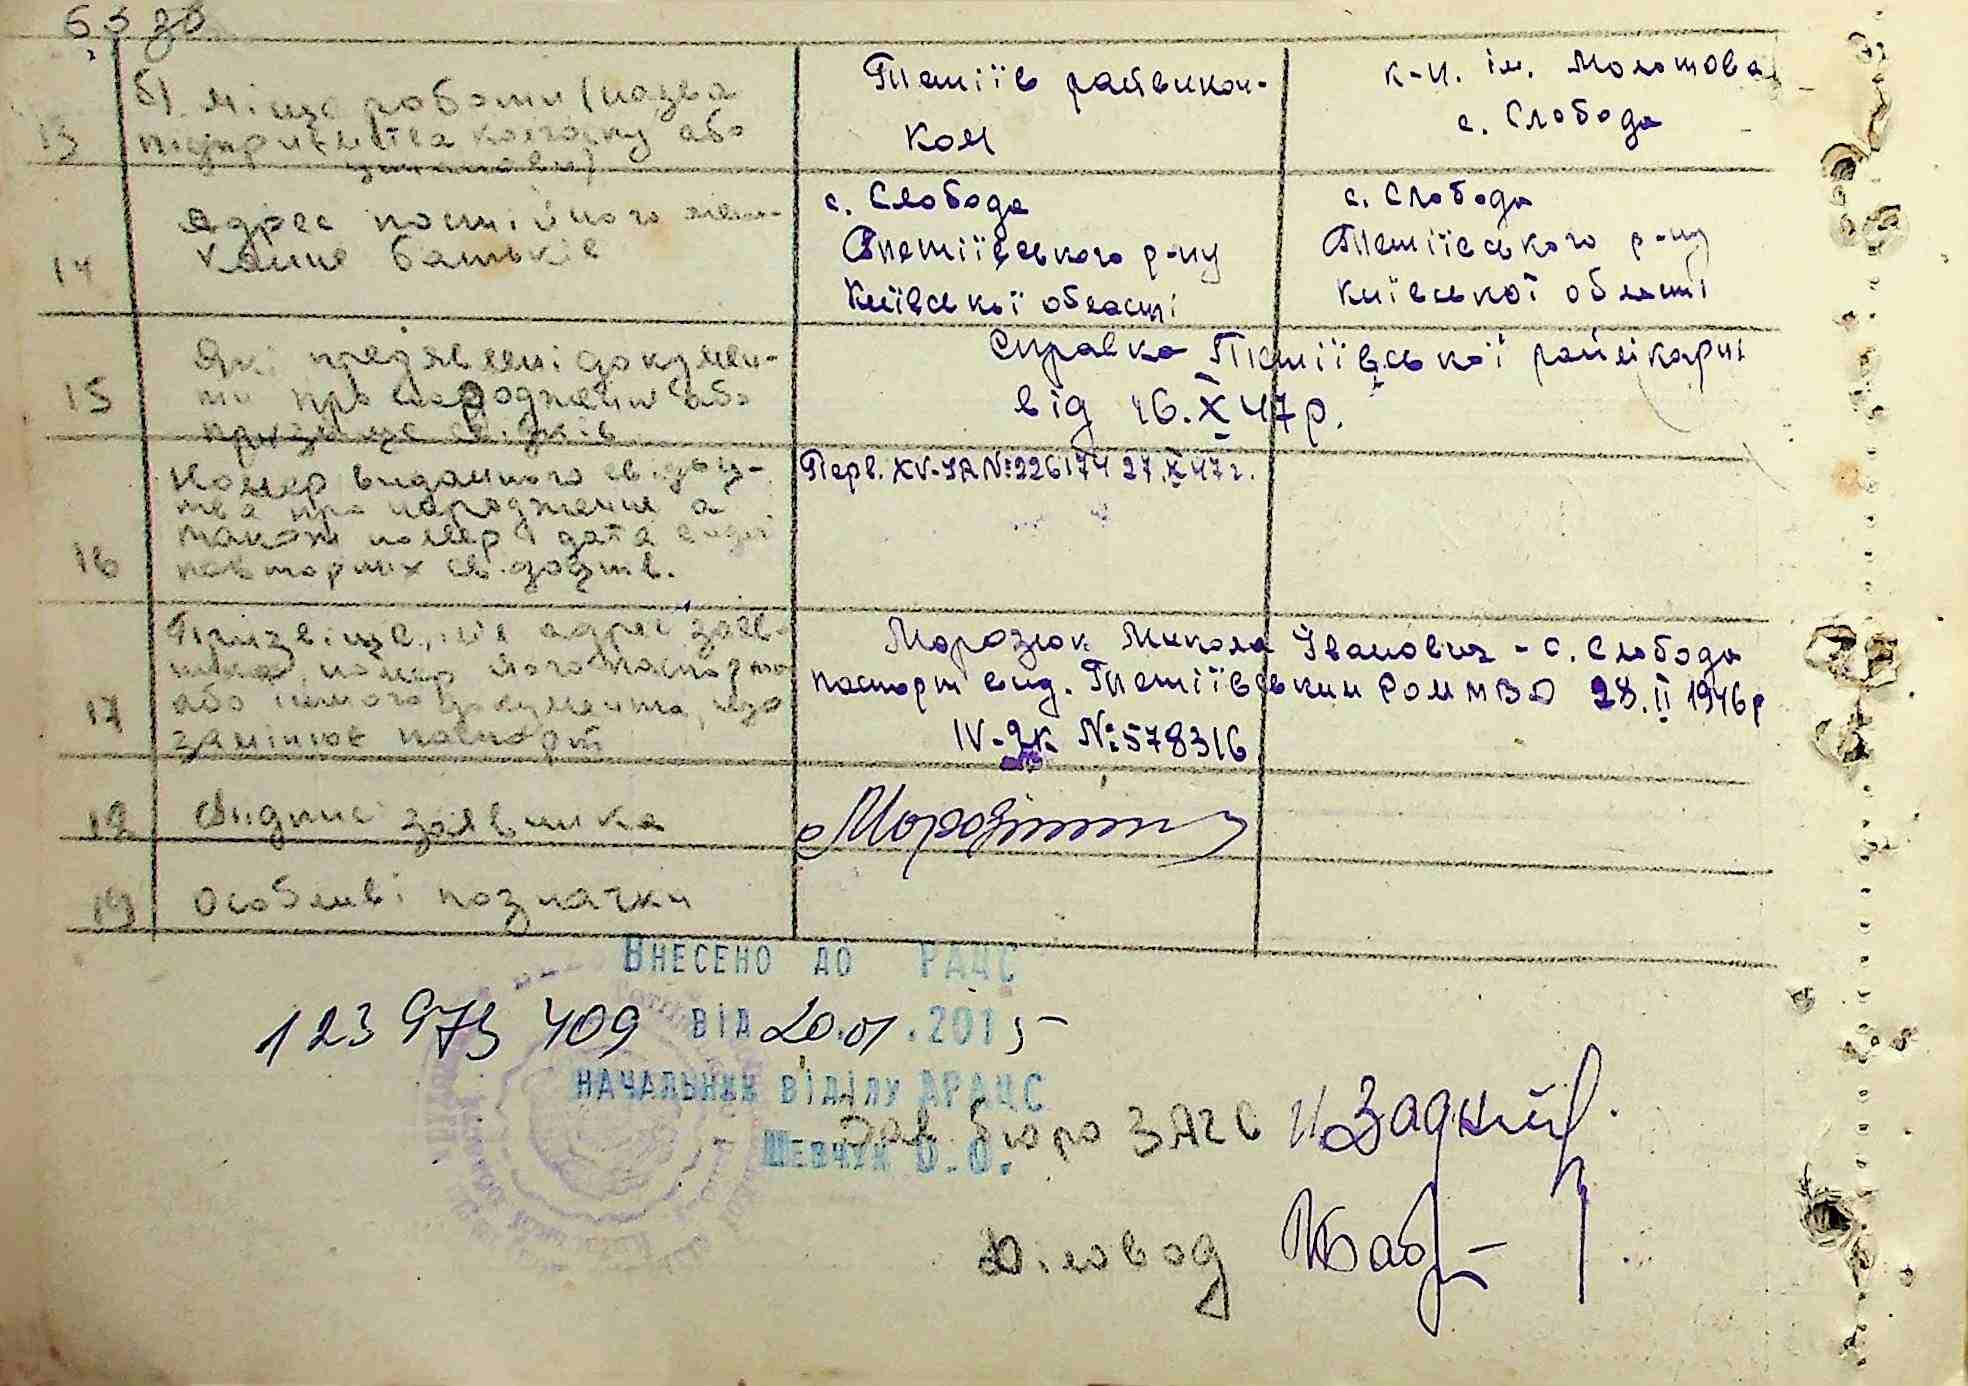 13
б). місце роботи (назва
підприємства колгоспу або
установи)
Тетіїв райвикон-
ком
к-п. ім. Молотова
с. Слобода
14
Адрес постійного меш-
кання батьків
с. Слобода
Тетіївського р-ну
Київської області
с. Слобода
Тетіївського р-ну
Київської області
15
Які предявлені докумен-
ти про народження або
Справка Тетіївської райлікарні
від 16.X 47 р.
16
Номер виданого свідоц-
тва про народження а
також номер і дата видачі
повторних свідоцтв.
Перв. XV-УЯ №226174 27.X 47 г.
17
Призвіще, імя адрес заяв-
ника, номер його паспорту
або іншого документа, що
замінює паспорт
Морозюк Микола Іванович - с. Слобода
паспорт вид. Тетіївським РОМ МВД 28.II 1946 р
IV- №578316
18
Підпис заявника
19
Особливі позначки
Внесено до РАЦС
123 973 409 від 20.01.2015
Начальник відділу ДРАЦС
Шевчук О.О.
Зав. бюро ЗАГС Задний
Діловод